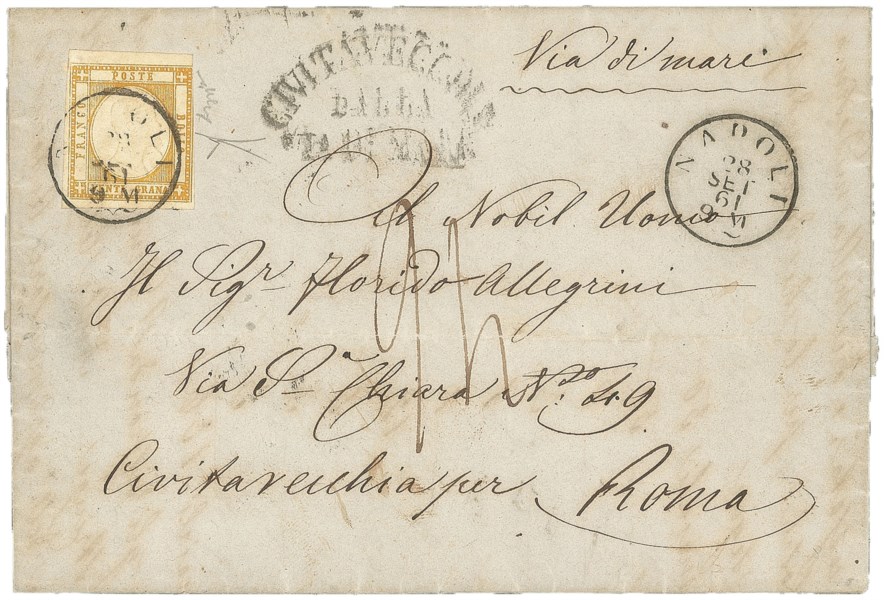 POSTE
FRANCO
BOLLO
VENTI GRANA
NAPOLI
61
9 M
CIVITAVECCHIA
DALLA
VIA DI MARE
Via di mare
NAPOLI
28
SET
61
9 M
Al Nobil Uomo
Il Sigr Florido Allegrini
Via Sa Chiara No 49
Civitavecchia per Roma